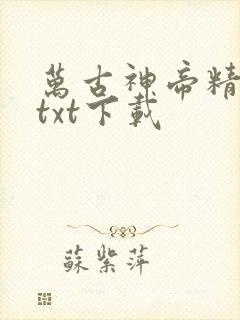 萬古神帝精
txt下載
蘇紫萍